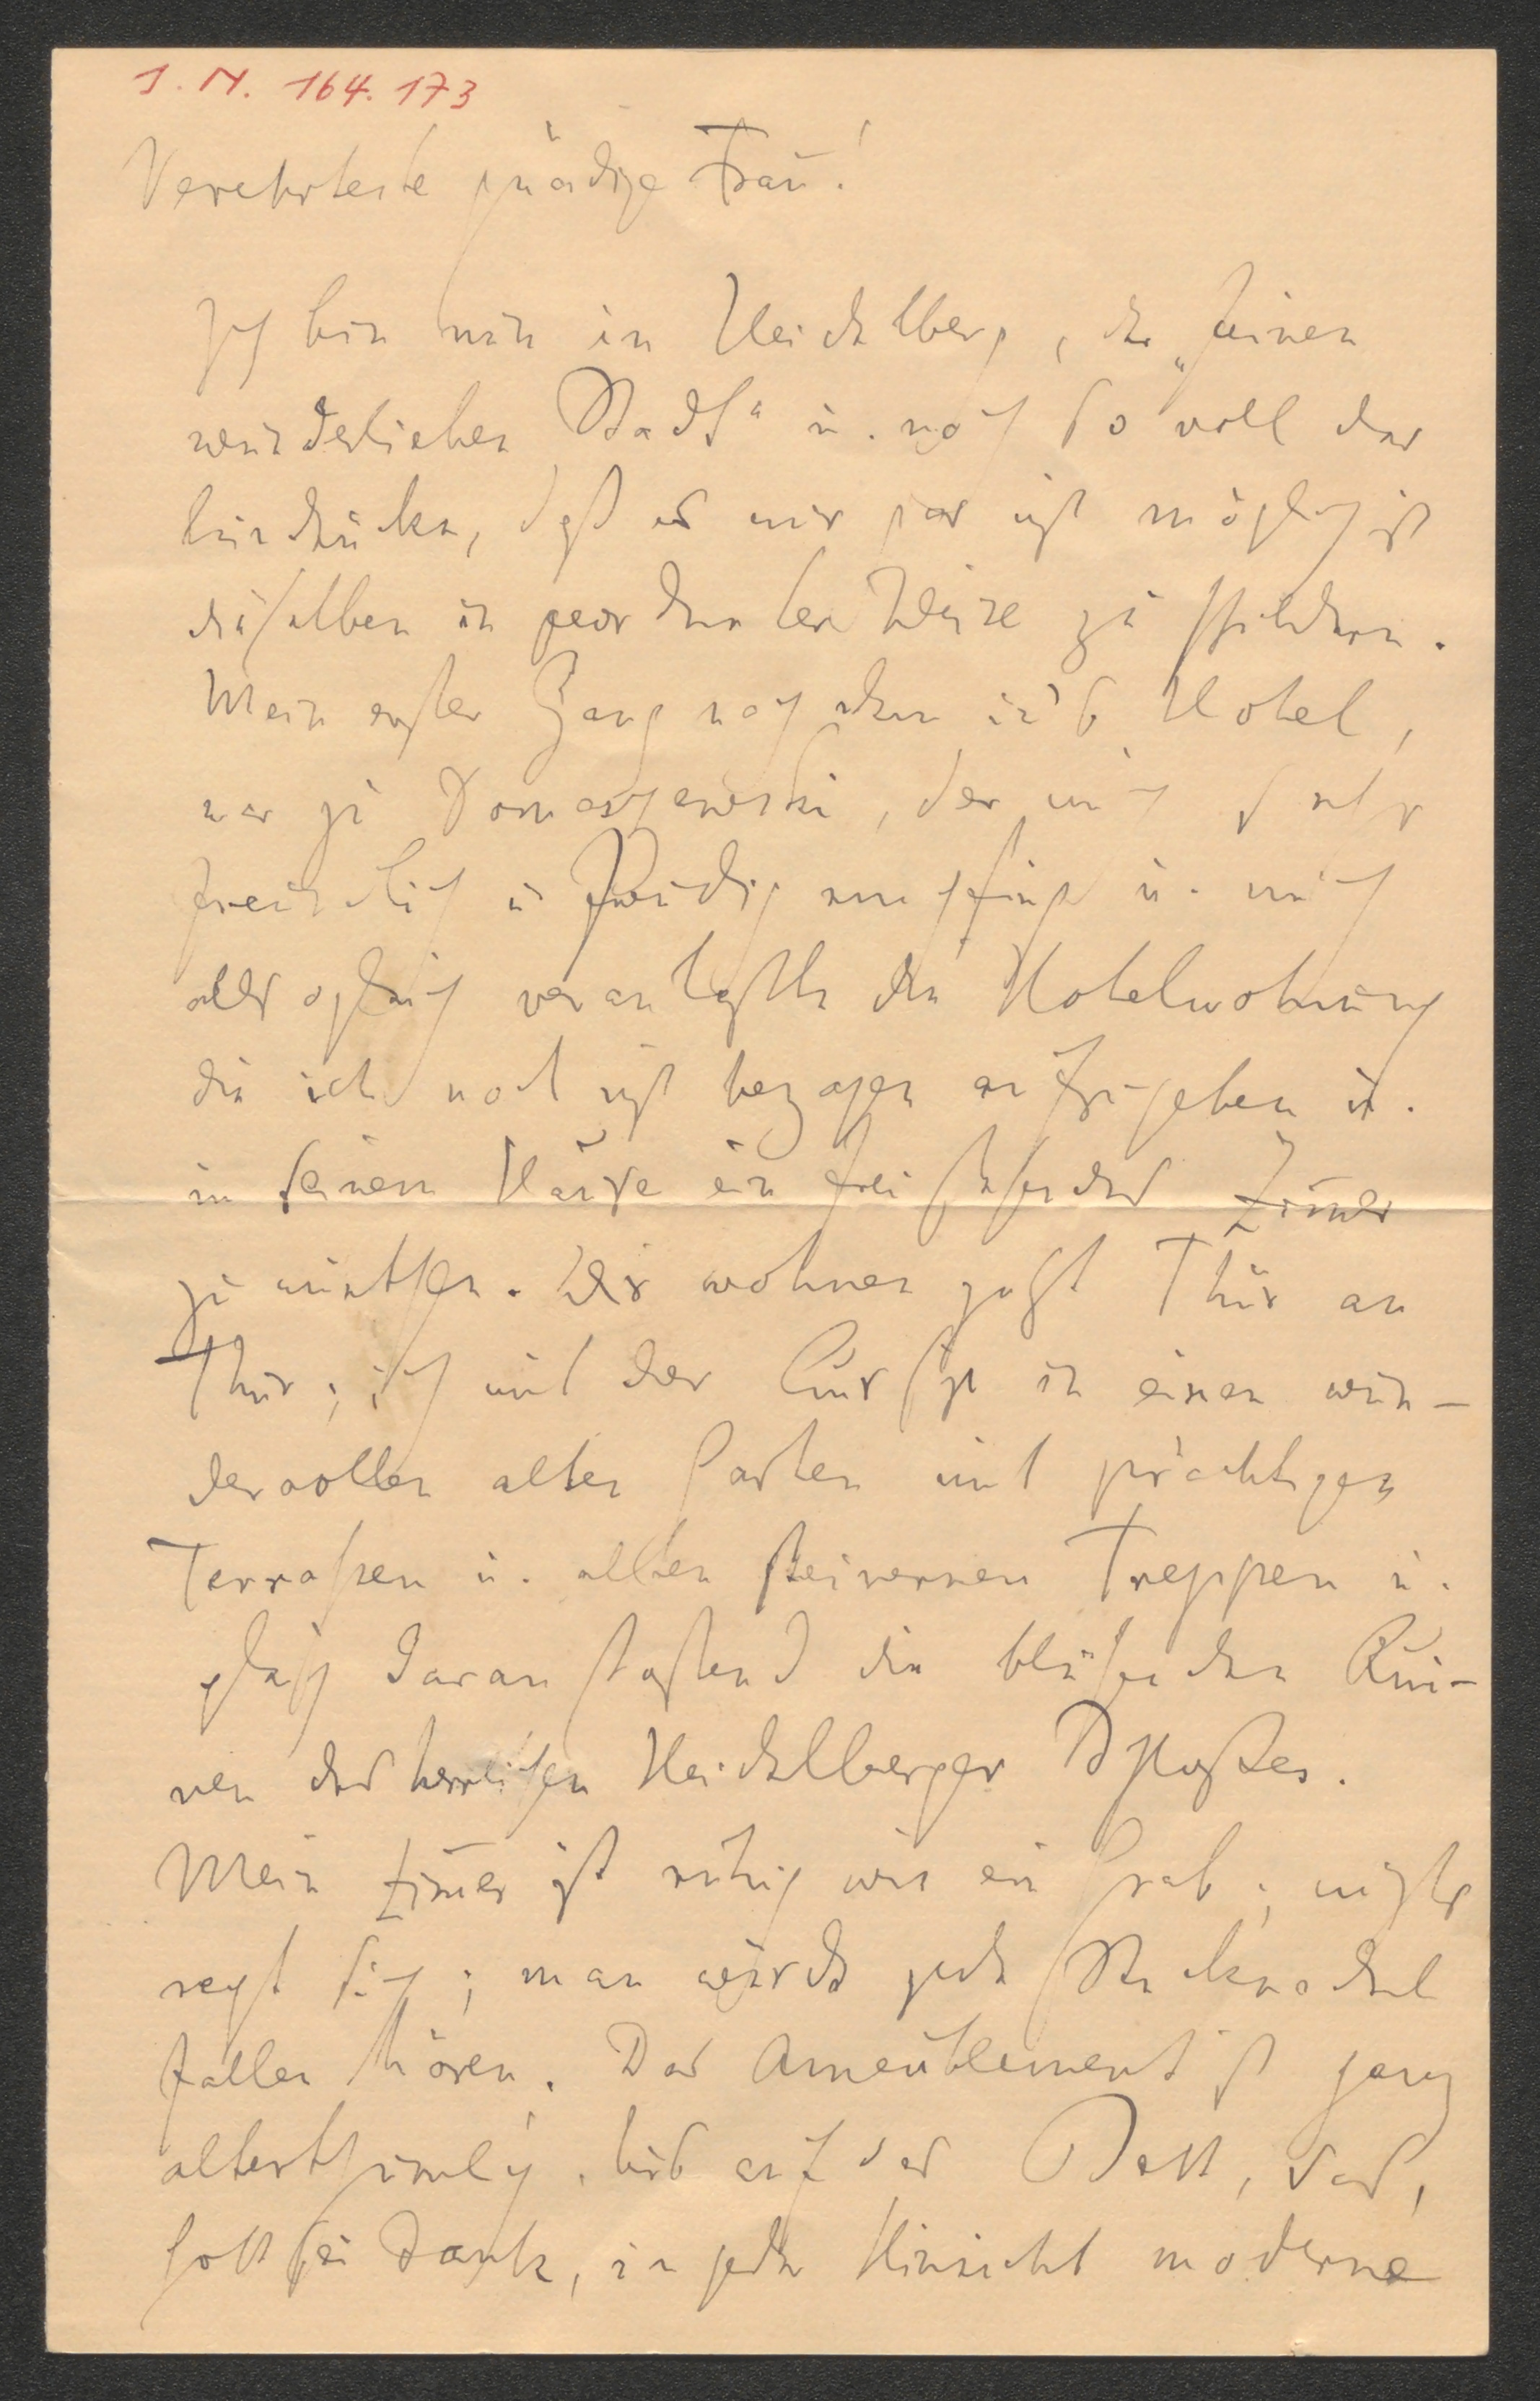 I. N. 164.173
Verehrteste gnädige Frau!
Ich bin nun in Heidelberg, der „feinen
wunderlieben Stadt“ u. noch so voll der
Eindrücke, daß es mir gar nicht möglich ist
dieselben in geordneter Weise zu schildern.
Mein erster Gang nach dem in's Hotel,
war zu Domaszewski, der mich sehr
freundlich u. freudig empfing u. mich
allsogleich veranlaßte die Hotelwohnung
die ich noch nicht bezogen aufzugeben u.
in seinem Hause ein freistehendes Zimmer
zu miethen. Wir wohnen jetzt Thür an
Thür; ich mit der Aussicht in einen wun-
dervollen alten Garten mit prächtigen
Terrassen u. alten steinernen Treppen u.
gleich daranstoßend die blühenden Rui-
nen des herrlichen Heidelberger Schloßes.
Mein Zimmer ist ruhig wie ein Grab; nichts
regt sich; man würde jede Stecknadel
fallen hören. Das Ameublement ist ganz
alterthümlich, bis auf das Bett, das,
Gott sei Dank, in jeder Hinsicht moderne